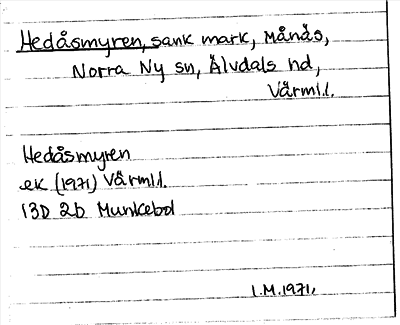 Hedåsmyren, sank mark, Månäs,
Norra Ny sn, Älvdals hd,
Värml.
Hedåsmyren
ek (1971) Värml.
13D 2b Munkebol
I.M.1971.